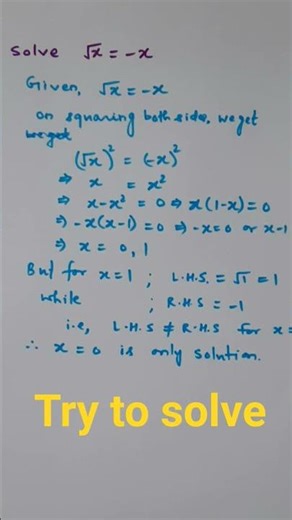 Solve √x = -x
Given, √x = -x
on squaring both side, we get
we get
(√x)² = (-x)²
⇒ x = x²
⇒ x-x² = 0 ⇒ x(1-x)=0
⇒ -x(x-1) = 0 ⇒ -x=0 or x-1
⇒ x = 0, 1
But for x=1 ; L.H.S. = √1 = 1
while ; R.H.S = -1
i.e, L.H.S ≠ R.H.S for x=
∴ x = 0 is only solution.
Try to solve